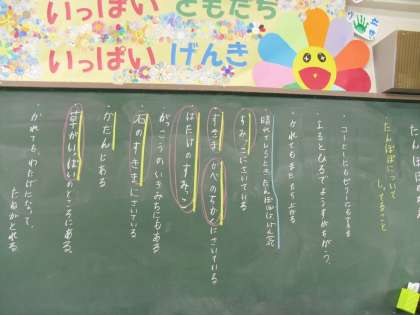 いっぱい ともだち
いっぱい げんき
たんぽ
たんぽぽについて
しってること
・コーヒーにもゼリーにもできる
・よるとひるでようすがちがう。
・かれてもまたたち上がる
・晴れているとき、たんぽぽはげん気
・すみっこにさいている
・すきま かべのちかくにさいている
・はたけのすみっこ
がっこうのいきみちにもある
・石のすきまにさいている
・かだんにある
・草がいっぱいのところにある。
・かれても、わたげになって、
たねがとれる